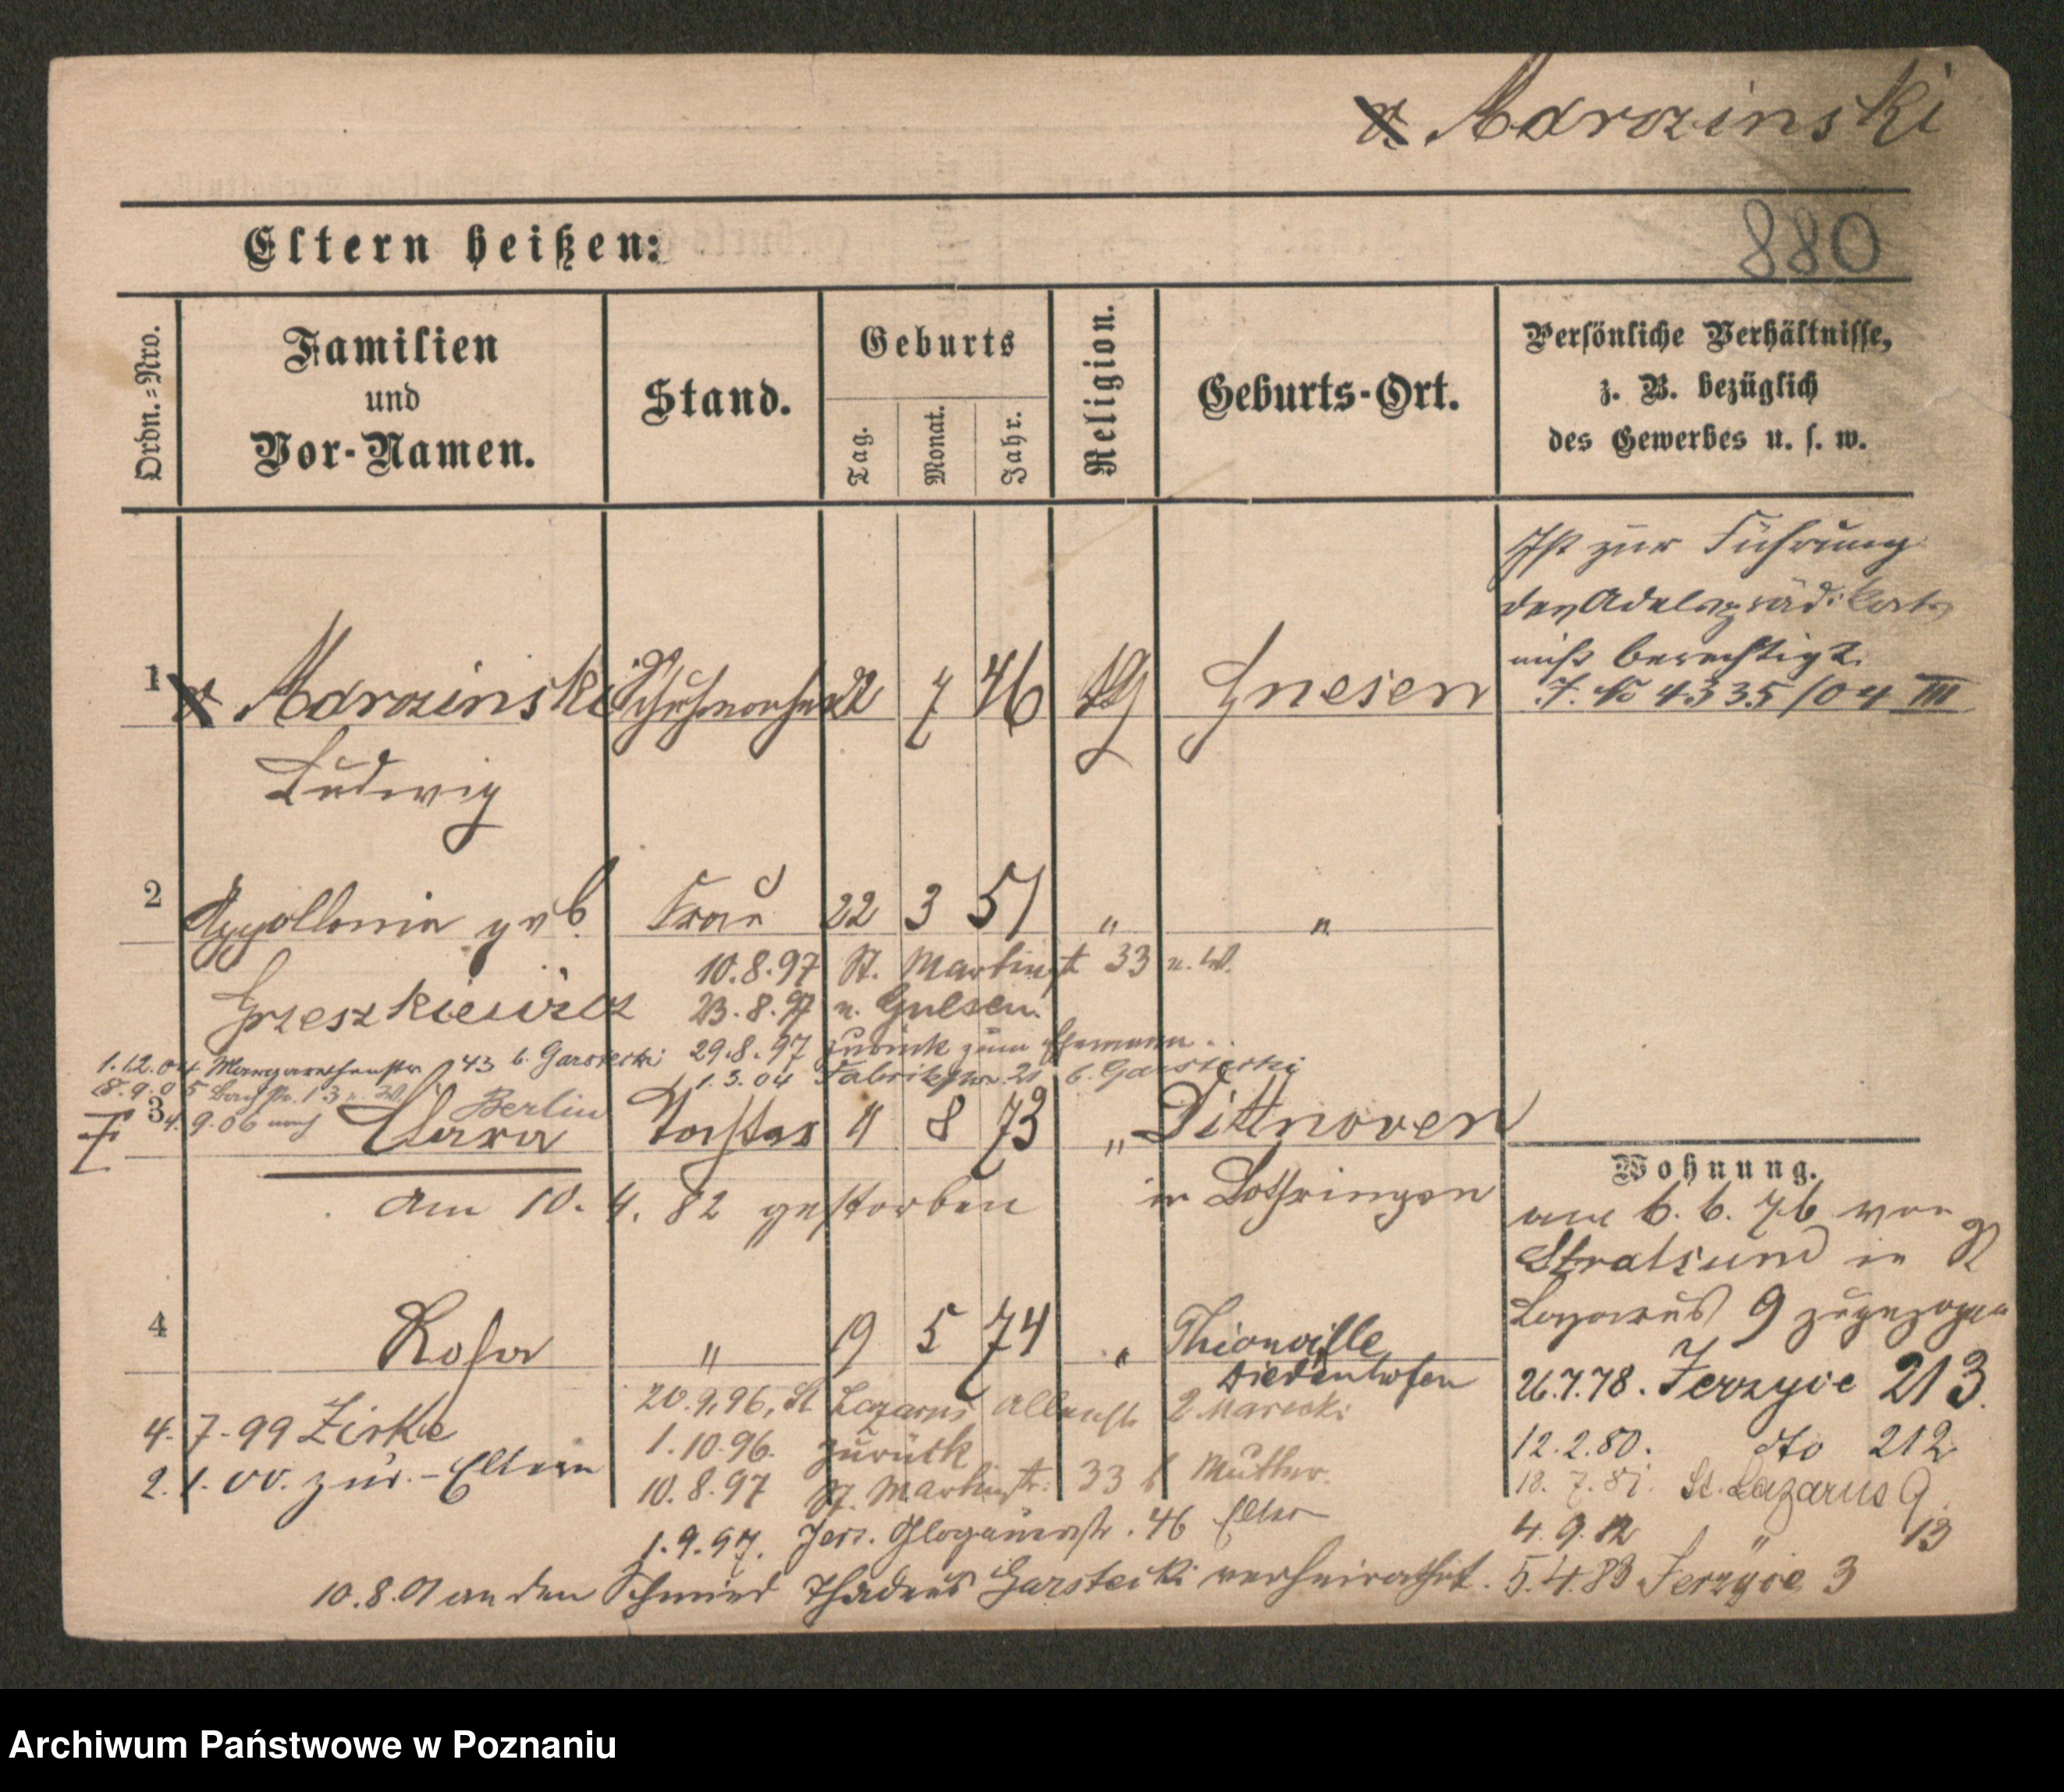 v. Marozinski
Eltern heißen:
880
Ordn.=Nro.
Familien
und
Vor-Namen.
Stand.
Geburts
Tag.
Monat.
Jahr.
Religion.
Geburts-Ort.
Persönliche Verhältnisse,
z. B. bezüglich
des Gewerbes u. s. w.
Ist zur Führung
des Adelsprädikats
nicht berechtigt.
J. No 4335/04 III
1 v. Marozinski Schuhmacher 22 7 46 Gnesen
Ludwig
2 Appollonia geb. Frau 22 3 51 " "
10.8.97 St. Martinstr 33 n. W.
Grzeszkiewicz 23.8.97 n. Gnesen.
29.8.97 zurück zum Ehemann.
1.12.04 Margarethenstr 43 b. Garstecki
1.3.04 Fabrikstr. 21 b. Garstecki
18.9.05 13 n. W.
4.9.06 nach Berlin
3 Clara Tochter 11 8 73 " Dittnoven
am 10. 4. 82 gestorben
in Lothringen
Wohnung.
am 6. 6. 76 von
Stralsund in St
Lazarus 9 zugezogen
4 Rosa " 19 5 74 " Thionville
Diedenhofen
26.7.78. Jerzyce 213.
20.9.96, St Lazarus
4.7.99 Zirke
1.10.96. zurück
12.2.80. dto 212
2.1.00. zur. - Eltern
10.8.97 St. Martinstr. 33 b Mutter.
18.7.81. St. Lazarus 9.
1.9.97. Jerz. Glogauerstr. 46 Eltern
4.9.82 " 13
10.8.01 an den Schmied Thadeus Garstecki verheirathet.
5.4.83 Jerzyce 3
Archiwum Państwowe w Poznaniu